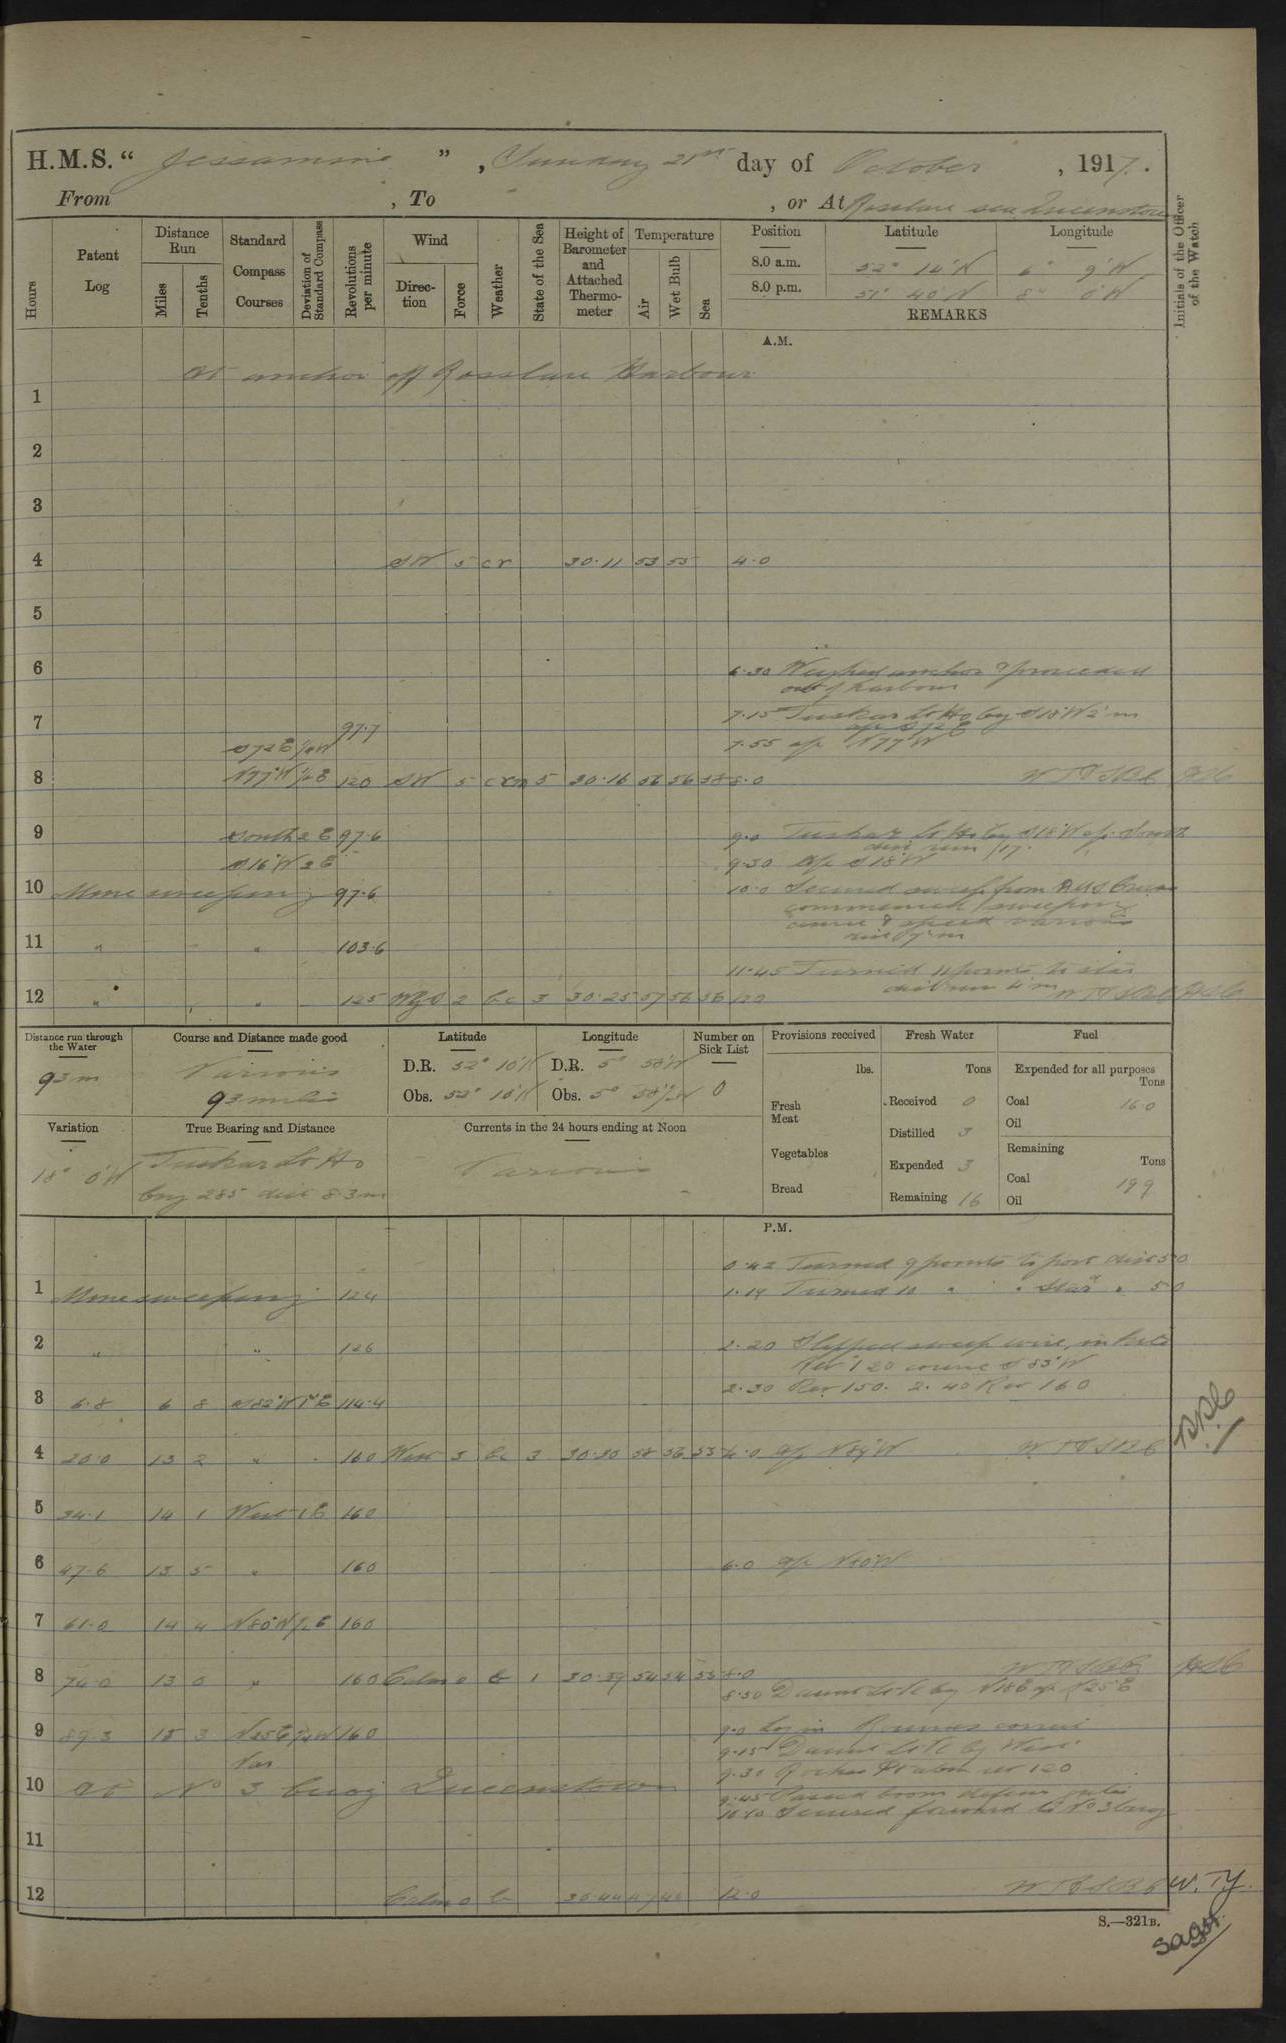 H.M.S. " Jessamine " , Sunday 28th day of October , 1917.
From , To , or At Rosslare sea Queenstown
Hours
Patent Log
Distance Run
Miles
Tenths
Standard Compass Courses
Deviation of Standard Compass
Revolutions per minute
Wind
Direction
Force
Weather
State of the Sea
Height of Barometer and Attached Thermometer
Temperature
Air
Wet Bulb
Sea
Position Latitude Longitude
8.0 a.m. 52° 14' N 6° 9' W
8.0 p.m. 51° 40' N 8° 0' W
REMARKS
Initials of the Officer of the Watch
A.M.
At anchor off Rosslare Harbour
1
2
3
4 SW 5 cr 30.11 53 53 4.0
5
6 6.30 Weighed anchor & proceeded
out of harbour
7 97.7 7.15 Tuskar Lt Ho brg S18°W 2'm
a/c S72°E
S72°E 7.55 a/c N77°W
8 N77°W 1/2E 120 SW 5 crm 5 30.16 56 56 58 8.0
9 South 2E 97.6 9.0 Tuskar Lt Ho brg S18°W a/c South
S16°W 2E 9.30 a/c S18°W
10 Mine sweeping 97.6 10.0 Secured sweep from
commenced sweeping
course & speed various
11 " " 103.6
11.45 Turned 11 points to star
12 " " 125 WbyS 2 bc 3 30.25 57 56 56 12.0
Distance run through the Water
93m
Course and Distance made good
Various
93 miles
Latitude
D.R. 52° 10' N
Obs. 52° 10' N
Longitude
D.R. 5° 58' W
Obs. 5° 58' W
Number on Sick List
0
Provisions received
lbs.
Fresh Meat
Vegetables
Bread
Fresh Water
Tons
Received 0
Distilled 3
Expended 3
Remaining 16
Fuel
Expended for all purposes
Tons
Coal 16.0
Oil
Remaining
Tons
Coal 199
Oil
Variation
18° 0' W
True Bearing and Distance
Tuskar Lt Ho
brg 285 dist 8.3m
Currents in the 24 hours ending at Noon
Various
P.M.
0.42 Turned 9 points to port dist 5.0
1 Mine sweeping 124 1.19 Turned 10 " " Star " 5.0
2 " " 126 2.20 Slipped sweep wire,
Rev 120 course S 83°W
2.30 Rev 150. 2.40 Rev 160
3 6.8 6 8 S82°W 1°E 114.4
4 20.0 13 2 " 160 West 3 bc 3 30.30 58 56 55 4.0 a/c N89°W
5 34.1 14 1 West 1E 160
6 47.6 13 5 " 160 6.0 a/c N80°W
7 61.0 14 4 N80°W 1/2E 160
8 74.0 13 0 " 160 Calm 0 b 1 30.39 54 54 55 8.0
8.50 Daunt Lt V brg N18E a/c N25°E
9 89.3 15 3 N25E 160 9.0 Log in Revs various courses
9.15 Daunt Lt V brg West
Var 9.30 Roches Pt abm rev 120
10 At No 3 buoy Queenstown 9.45 Passed boom defence gates
10.10 Secured forward to No 3 buoy
11
12 Calm 0 b 30.44 47 46 12.0
W.T.Y.
S.—321B.